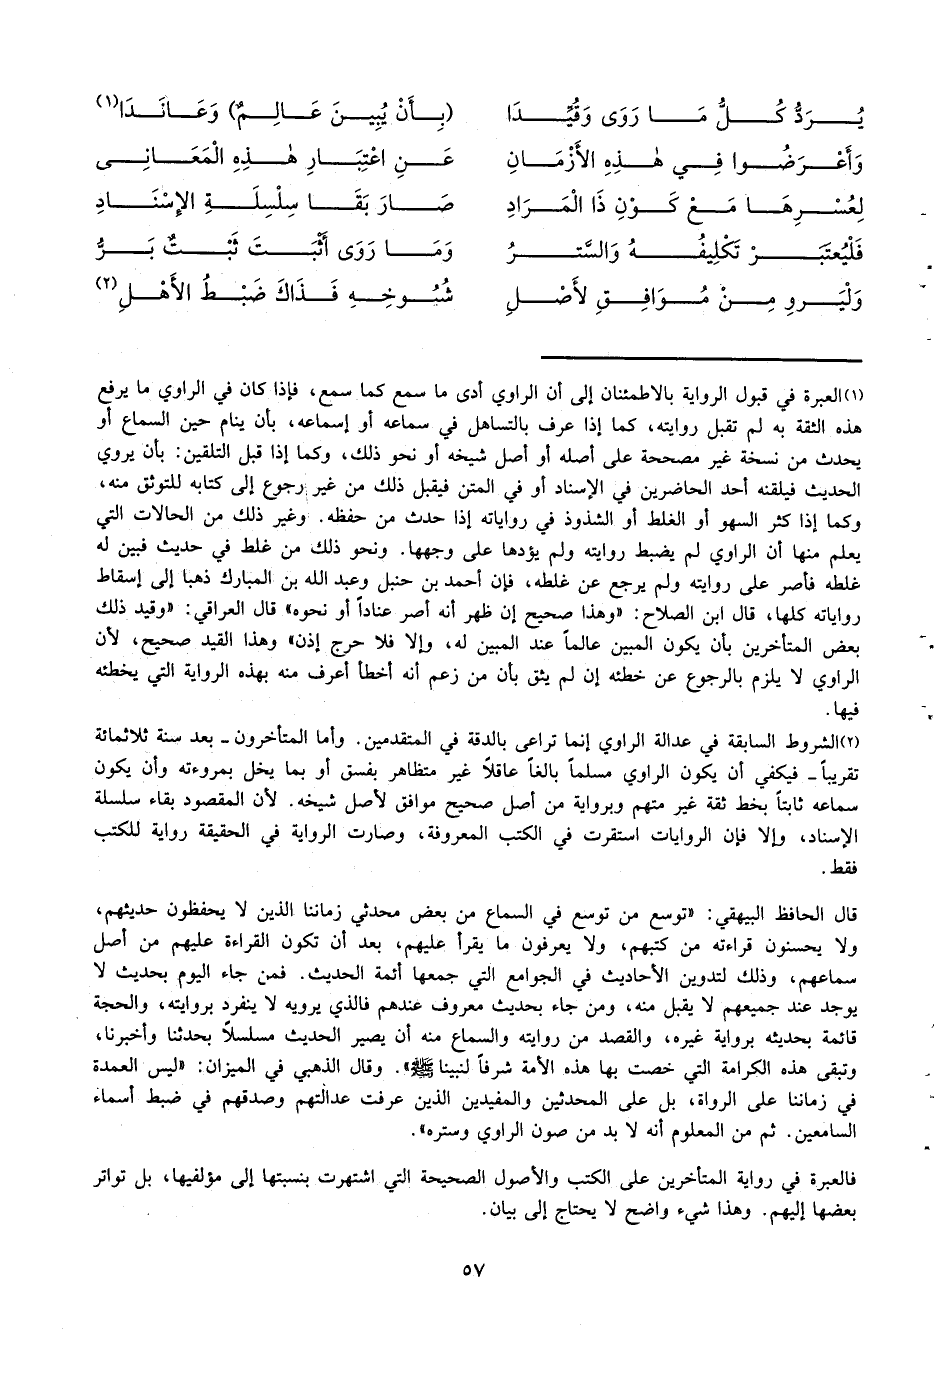 يُـرَدُّ كُـلُّ مَـا رَوَى وَقُيِّـدَا (بِـأَنْ يُبِيـنَ عَـالِـمٌ) وَعَـانَـدَا(١)
وَأَعْـرَضُـوا فِـي هٰـذِهِ الأَزْمَـانِ عَـنِ اعْتِبَـارِ هٰـذِهِ الْمَعَـانِـى
لِعُسْـرِهَـا مَـعْ كَـوْنِ ذَا الْمُـرَادِ صَـارَ بَقَـا سِلْسِلَـةِ الإِسْنَـادِ
فَلْيُعْتَبَـرْ تَكْلِيفُـهُ وَالسَّتْـرُ وَمَـا رَوَى أَثْبَـتَ ثَبْـتٌ بَـرُّ
وَلْيَـرْوِ مِـنْ مُـوَافِـقٍ لأَصْـلِ شُيُـوخِـهِ فَـذَاكَ ضَبْـطُ الأَهْـلِ(٢)
(١)العبرة في قبول الرواية بالاطمئنان إلى أن الراوي أدى ما سمع كما سمع، فإذا كان في الراوي ما يرفع
هذه الثقة به لم تقبل روايته، كما إذا عرف بالتساهل في سماعه أو إسماعه، بأن ينام حين السماع أو
يحدث من نسخة غير مصححة على أصله أو أصل شيخه أو نحو ذلك، وكما إذا قبل التلقين: بأن يروي
الحديث فيلقنه أحد الحاضرين في الإسناد أو في المتن فيقبل ذلك من غير رجوع إلى كتابه للتوثق منه،
وكما إذا كثر السهو أو الغلط أو الشذوذ في رواياته إذا حدث من حفظه. وغير ذلك من الحالات التي
يعلم منها أن الراوي لم يضبط روايته ولم يؤدها على وجهها. ونحو ذلك من غلط في حديث فبين له
غلطه فأصر على روايته ولم يرجع عن غلطه، فإن أحمد بن حنبل وعبد الله بن المبارك ذهبا إلى إسقاط
رواياته كلها، قال ابن الصلاح: «وهذا صحيح إن ظهر أنه أصر عناداً أو نحوه» قال العراقي: «وقيد ذلك
بعض المتأخرين بأن يكون المبين عالماً عند المبين له، وإلا فلا حرج إذن» وهذا القيد صحيح، لأن
الراوي لا يلزم بالرجوع عن خطئه إن لم يثق بأن من زعم أنه أخطأ أعرف منه بهذه الرواية التي يخطئه
فيها.
(٢)الشروط السابقة في عدالة الراوي إنما تراعى بالدقة في المتقدمين. وأما المتأخرون ـ بعد سنة ثلاثمائة
تقريباً ـ فيكفي أن يكون الراوي مسلماً بالغاً عاقلاً غير متظاهر بفسق أو بما يخل بمروءته وأن يكون
سماعه ثابتاً بخط ثقة غير متهم وبرواية من أصل صحيح موافق لأصل شيخه. لأن المقصود بقاء سلسلة
الإسناد، وإلا فإن الروايات استقرت في الكتب المعروفة، وصارت الرواية في الحقيقة رواية للكتب
فقط.
قال الحافظ البيهقي: «توسع من توسع في السماع من بعض محدثي زماننا الذين لا يحفظون حديثهم،
ولا يحسنون قراءته من كتبهم، ولا يعرفون ما يقرأ عليهم، بعد أن تكون القراءة عليهم من أصل
سماعهم، وذلك لتدوين الأحاديث في الجوامع التي جمعها أئمة الحديث. فمن جاء اليوم بحديث لا
يوجد عند جميعهم لا يقبل منه، ومن جاء بحديث معروف عندهم فالذي يرويه لا ينفرد بروايته، والحجة
قائمة بحديثه برواية غيره، والقصد من روايته والسماع منه أن يصير الحديث مسلسلاً بحدثنا وأخبرنا،
وتبقى هذه الكرامة التي خصت بها هذه الأمة شرفاً لنبيناﷺ». وقال الذهبي في الميزان: «ليس العمدة
في زماننا على الرواة، بل على المحدثين والمفيدين الذين عرفت عدالتهم وصدقهم في ضبط أسماء
السامعين. ثم من المعلوم أنه لا بد من صون الراوي وستره».
فالعبرة في رواية المتأخرين على الكتب والأصول الصحيحة التي اشتهرت بنسبتها إلى مؤلفيها، بل تواتر
بعضها إليهم. وهذا شيء واضح لا يحتاج إلى بيان.
٥٧